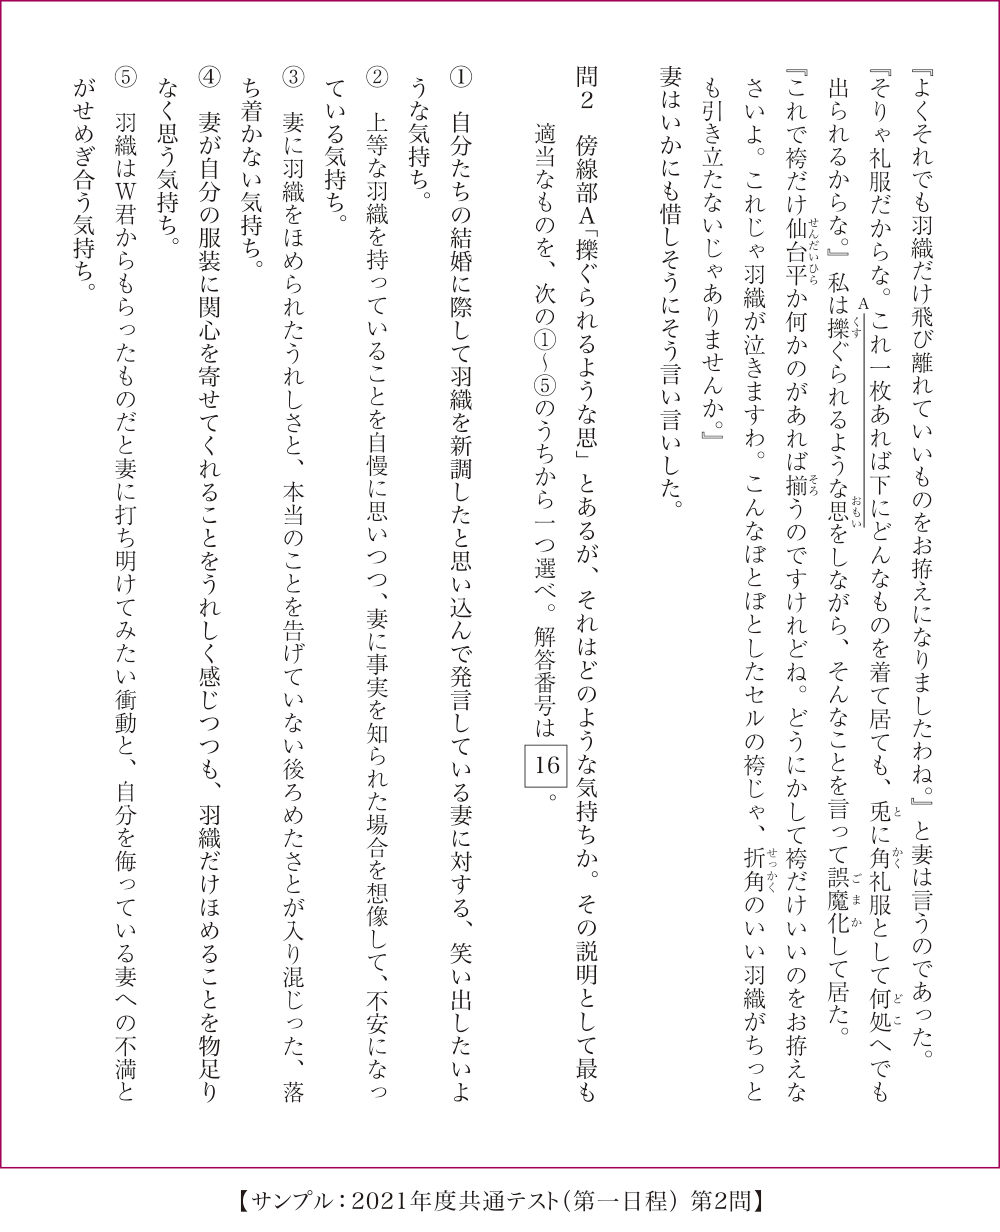 『よくそれでも羽織だけ飛び離れていいものをお拵えになりましたわね。』と妻は言うのであった。
『そりゃ礼服だからな。これ一枚あれば下にどんなものを着て居ても、兎に角礼服として何処へでも
とかくどこ
出られるからな。』私は擽ぐられるような思をしながら、そんなことを言って誤魔化して居た。
A
くすおもいごまか
『これで袴だけ仙台平か何かのがあれば揃うのですけれどね。どうにかして袴だけいいのをお拵えな
せんだいひらそろ
さいよ。これじゃ羽織が泣きますわ。こんなぼとぼとしたセルの袴じゃ、折角のいい羽織がちっと
せっかく
も引き立たないじゃありませんか。』
妻はいかにも惜しそうにそう言い言いした。
問2 傍線部A「擽ぐられるような思」とあるが、それはどのような気持ちか。その説明として最も
適当なものを、次の①〜⑤のうちから一つ選べ。解答番号は16。
① 自分たちの結婚に際して羽織を新調したと思い込んで発言している妻に対する、笑い出したいよ
うな気持ち。
② 上等な羽織を持っていることを自慢に思いつつ、妻に事実を知られた場合を想像して、不安になっ
ている気持ち。
③ 妻に羽織をほめられたうれしさと、本当のことを告げていない後ろめたさとが入り混じった、落
ち着かない気持ち。
④ 妻が自分の服装に関心を寄せてくれることをうれしく感じつつも、羽織だけほめることを物足り
なく思う気持ち。
⑤ 羽織はW君からもらったものだと妻に打ち明けてみたい衝動と、自分を侮っている妻への不満と
がせめぎ合う気持ち。
【サンプル：2021年度共通テスト（第一日程） 第2問】